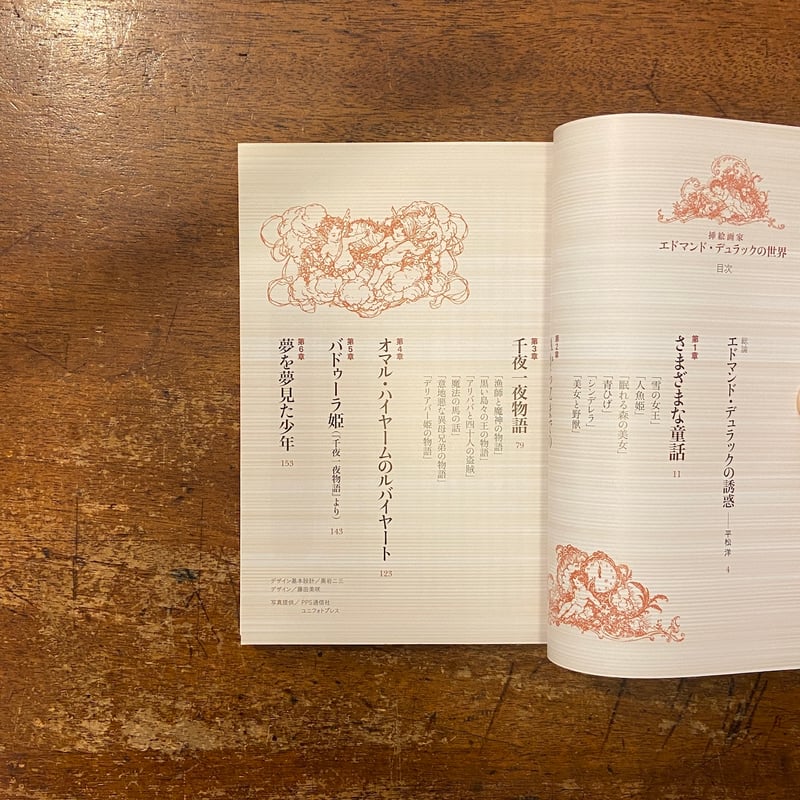 挿絵画家
エドマンド・デュラックの世界
目次
総論
エドマンド・デュラックの誘惑――平松 洋 4
第1章
さまざまな童話 11
「雪の女王」
「人魚姫」
「眠れる森の美女」
「青ひげ」
「シンデレラ」
「美女と野獣」
第2章
第3章
千夜一夜物語 79
「漁師と魔神の物語」
「黒い島々の王の物語」
「アリババと四十人の盗賊」
「魔法の馬の話」
「意地悪な異母兄弟の物語」
「デリアバー姫の物語」
第4章
オマル・ハイヤームのルバイヤート 123
第5章
バドゥーラ姫(『千夜一夜物語』より) 143
第6章
夢を夢見た少年 153
デザイン基本設計/黒岩二三
デザイン/藤田美咲
写真提供/PPS通信社
ユニフォトプレス